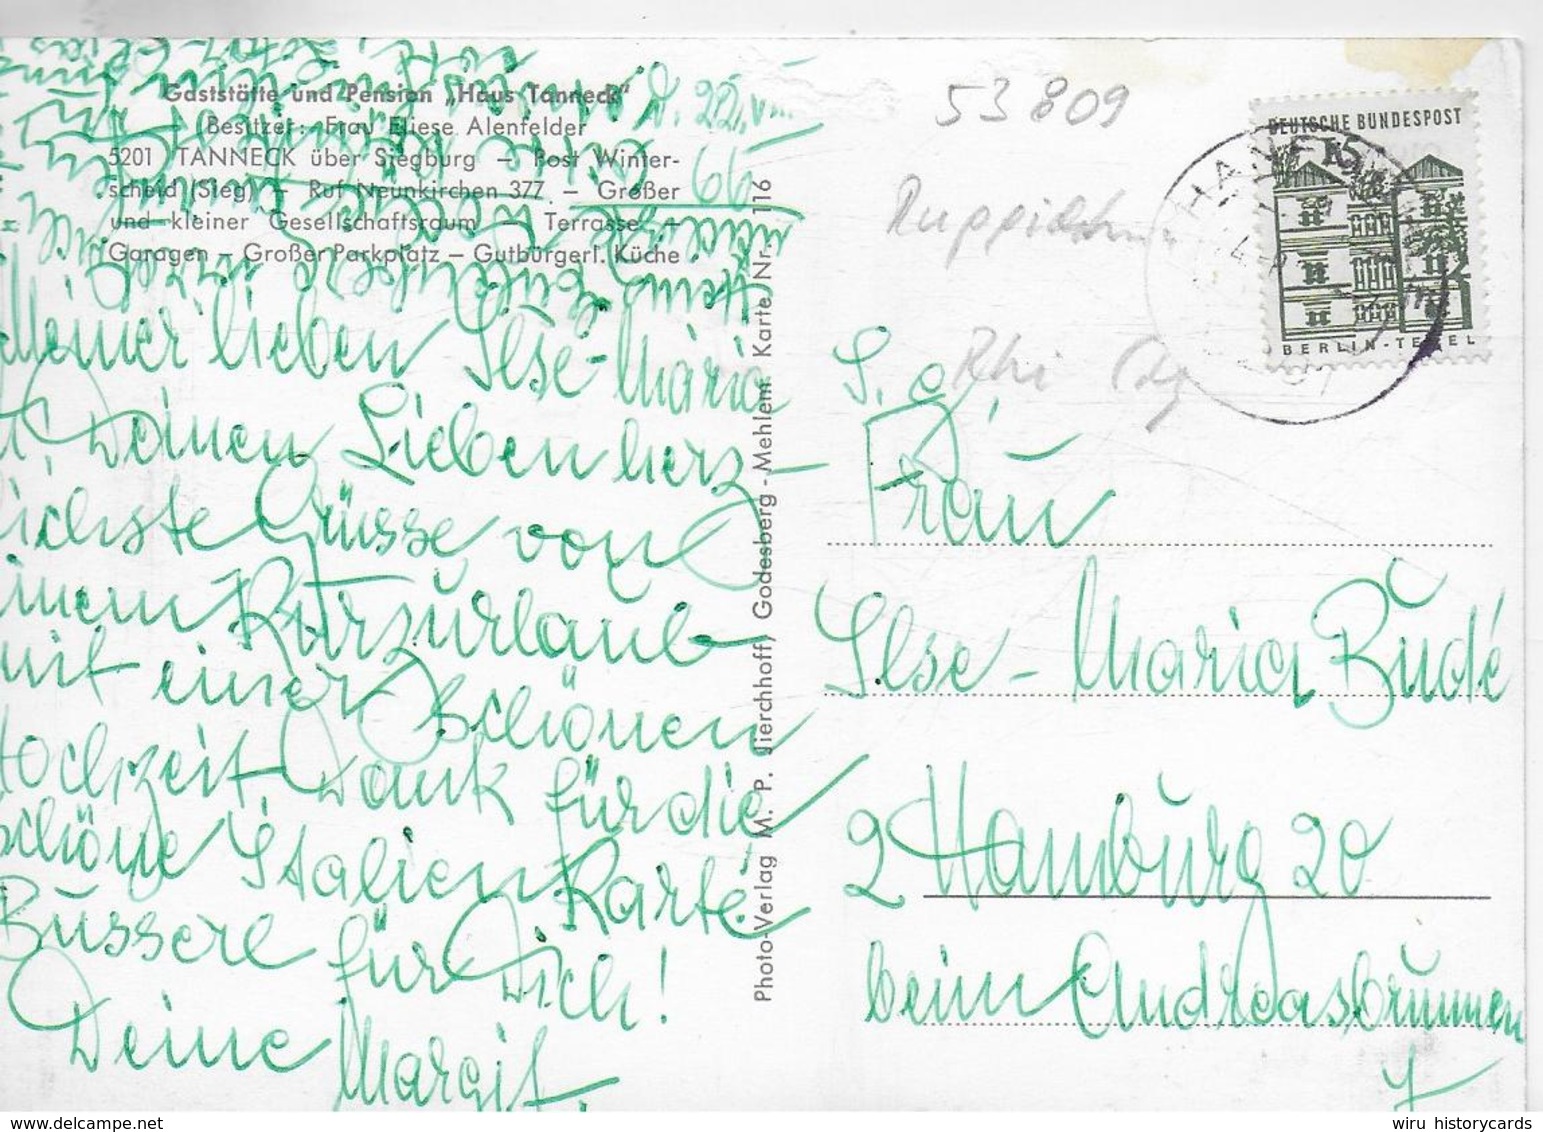 Gaststätte und Pension „Haus Tanneck"
Besitzer: Frau Eliese Alenfelder
5201 TANNECK über Siegburg — Post Winter-
scheid (Sieg) — Ruf Neunkirchen 377 — Großer
und kleiner Gesellschaftsraum — Terrasse —
Garagen — Großer Parkplatz — Gutbürgerl. Küche
d. 22. VIII.
66
Meiner lieben Ilse-Maria
u. Deinen Lieben herz-
lichste Grüsse von
einem Kurzurlaub
mit einer schönen
Hochzeit. Dank für die
schöne Italien Karte.
Bussere für Dich!
Deine Margit.
Photo-Verlag M. P. Jierchhoff, Godesberg-Mehlem Karte Nr. 116
53 809
DEUTSCHE BUNDESPOST
15
BERLIN-TEGEL
HANF
S. g.
Frau
Ilse-Maria Budé
2 Hamburg 20
beim Andreasbrunnen
7
www.delcampe.net
wiru historycards